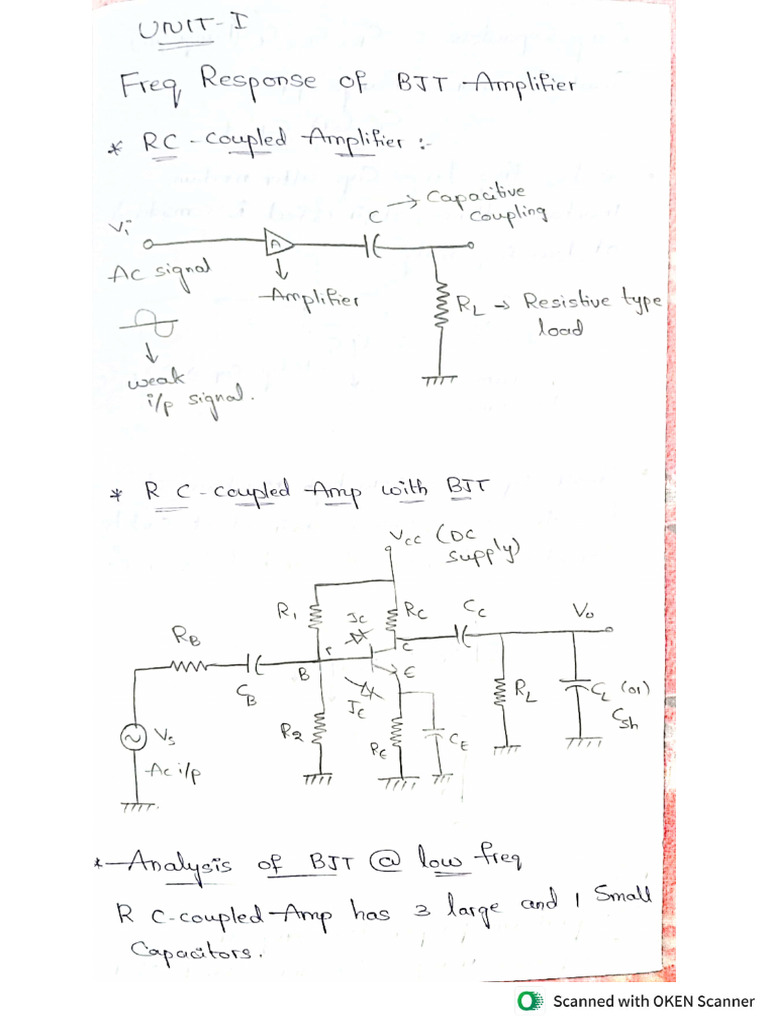 UNIT-I
Freq Response of BJT Amplifier
* RC-Coupled Amplifier :-
C → Capacitive
coupling
Vi
A
Ac signal
Amplifier
RL → Resistive type
load
weak
i/p signal.
* RC-coupled Amp with BJT
Vcc (DC
supply)
R1
Jc
Rc
Cc
Vo
RB
C
B
E
CB
RL
CL (or)
Csh
R2
Vs
RE
CE
Ac i/p
* Analysis of BJT @ low freq
RC-coupled Amp has 3 large and 1 Small
Capacitors.
Scanned with OKEN Scanner